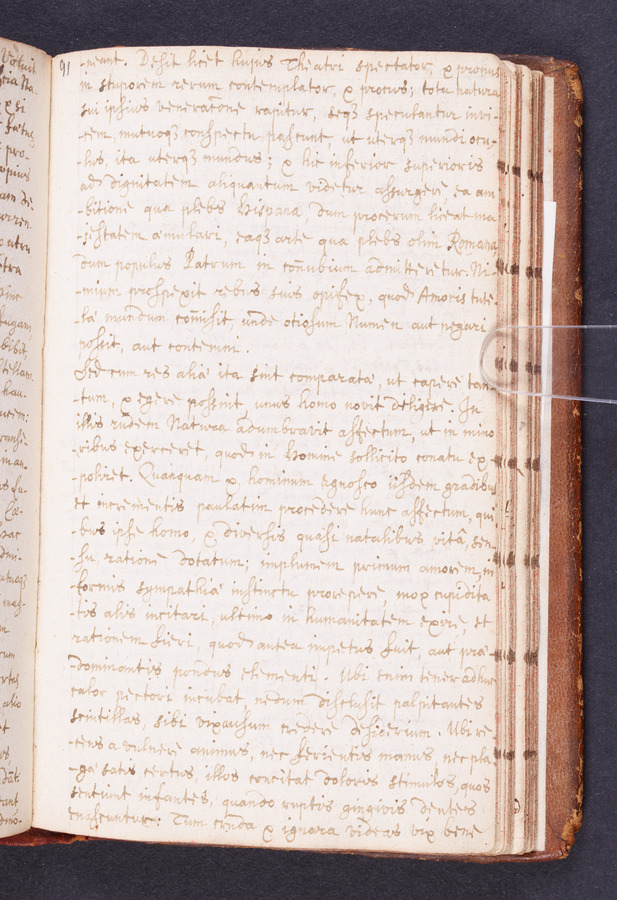 91
-neant. Desit licet hujus Theatri spectator, & pronus
in stuporem rerum contemplator, & procus; tota natura
sui ipsius veneratione rapitur, seqz speculantur invi-
-cem, mutuoqz conspectu pascunt, ut uterqz mundi ocu-
-lus, ita uterqz mundus; & hic inferior superioris
ad dignitatem aliquantum videtur assurgere ea am
-bitione qua plebs Hispana, dum procerum liceat ma
-jestatem æmulari, eaqz arte qua plebs olim Romana
dum populus Patrum in coñubium admitteretur. Ni
-mium prospexit rebus suis opifex, quod Amoris tute
-lâ mundum com̄isit, unde otiosum Numen aut negari
possit, aut contemni.
Sed cum res aliæ ita sint comparatæ, ut capere tan
-tum, & egere possint, unus homo novit deligere. In
illis rudem Natura adumbravit affectum, ut in mino
-ribus exerceret, quod in Homine sollicito conatu ex-
-poliret. Quanquam & hominum agnosco iisdem gradibus
et incrementis paulatim procedere hunc affectum, qui
-bus ipse homo, & diversis quasi natalibus vitâ, sen
-su, ratione dotatum; implumem primum amorem, in
-formis sympathiæ instinctu prorepere, mox cupidita
-tis alis incitari, ultimo in humanitatem exire, et
rationem fieri, quod antea impetus fuit, aut præ-
-dominantis pondus elementi. Ubi enim tener adhuc
calor pectori incubat, nedum disclusit palpitantes
scintillas, sibi vix ausum credere desiderium. Ubi re
-cens a vulnere animus, nec ferientis manus, nec pla
-gæ satis certus, illos concitat doloris stimulos, quos
sentiunt infantes, quando ruptis gingivis dentes
enascuntur: Tum cruda & ignara videas vix bene